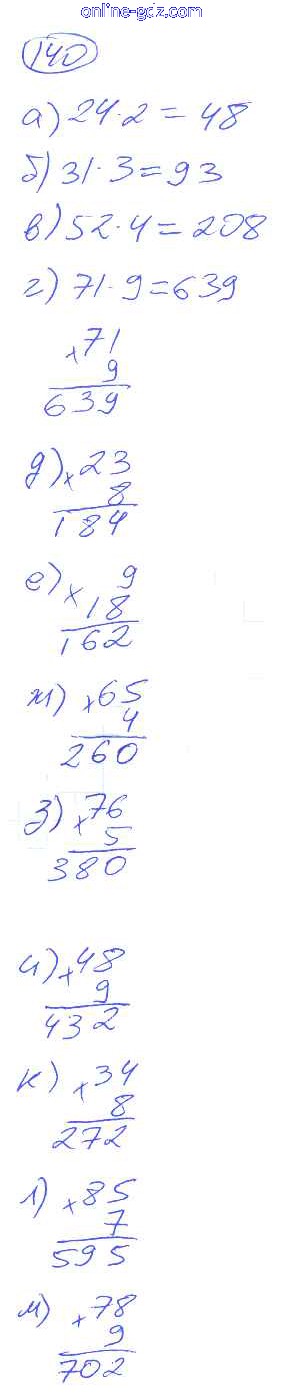 online-gdz.com
140
а) 24·2=48
б) 31·3=93
в) 52·4=208
г) 71·9=639
×71
9
639
д) ×23
8
184
е) × 9
18
162
ж) ×65
4
260
з) ×76
5
380
и) ×48
9
432
к) ×34
8
272
л) ×85
7
595
м) ×78
9
702